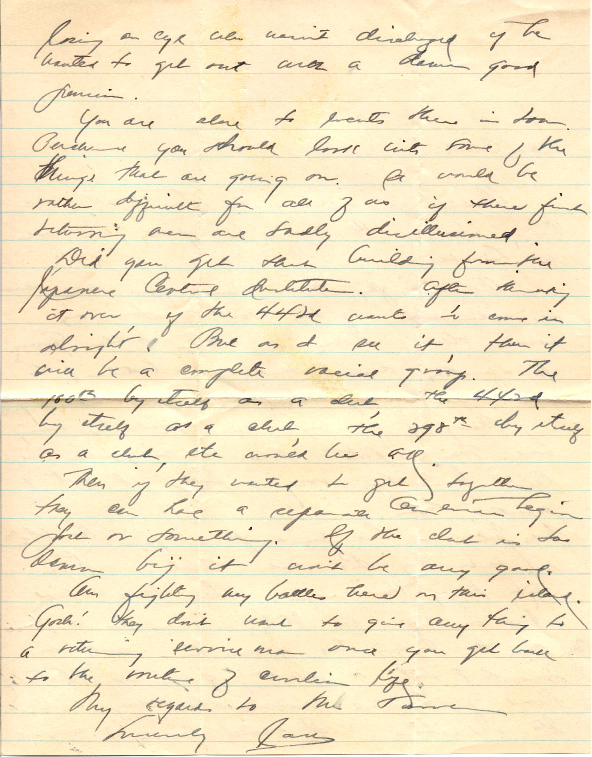 losing an eye who wasn't discharged if he
wanted to get out with a damn good
pension.
You are alone to events there in town.
Perchance you should look into some of the
things that are going on. It would be
rather difficult for all of us if these first
returning men are sadly disillusioned.
Did you get that building from the
Japanese Central Institute. After thinking
it over if the 442d wants to come in
alright. But as I see it then it
will be a complete racial group. The
100th by itself as a club the 442nd
by itself as a club the 298th by itself
as a club, etc would be all.
Then if they wanted to get together
they can have a separate American Legion
post or something. If the club is too
damn big it won't be any good.
Am fighting my battles here on this island.
Gosh! they don't want to give any thing to
a returning service man once you get back
to the routine of civilian life.
My regards to Mr
Sincerely